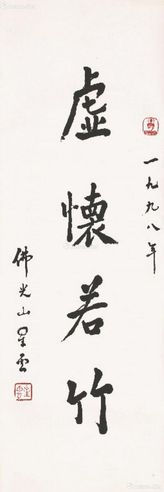 一九九八年
虛懷若竹
佛光山星雲